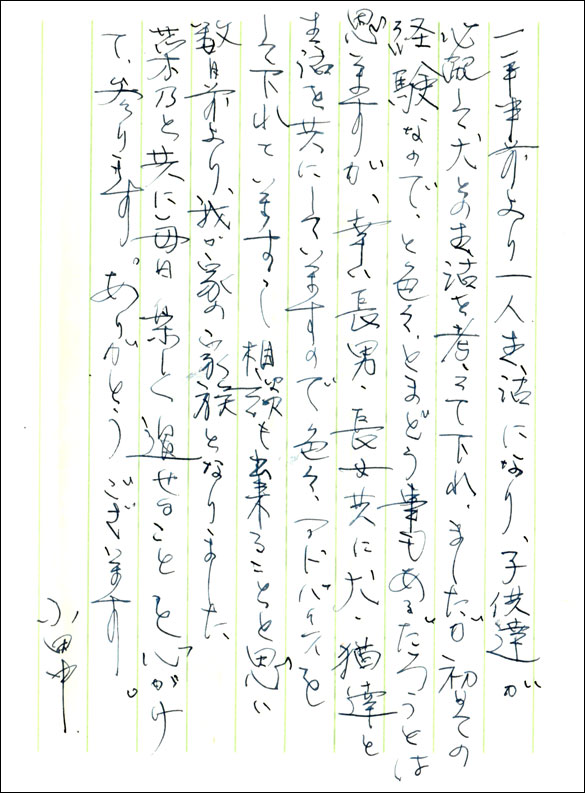 一年半前より一人生活になり、子供達が
心配して犬との生活を考えて下れましたが初めての
経験なので、と色々、とまどう事もあるだろうとは
思いますが、幸い長男、長女共に犬・猫達と
生活を共にしていますので色々、アドバイスを
して下れていますし相談も出来ることと思い
数日前より、我が家の家族となりました、
と共に毎日楽しく過せることを心がけ
て、参ります。ありがとうございます。
小田中